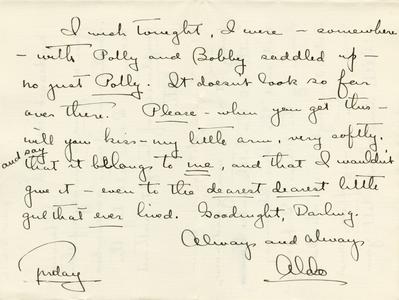 I wish tonight, I were – somewhere
– with Polly and Bobby saddled up –
no just Polly. It doesn't look so far
over there. Please – when you get this –
will you kiss – my little arm, very softly,
and say that it belongs to me, and that I wouldn't
give it – even to the dearest dearest little
girl that ever lived. Goodnight, Darling.
Always and always
Aldo
Friday